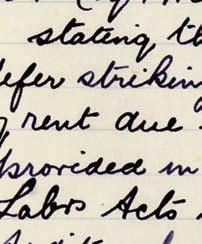 stating th
efer striking
rent due
provided in
Labrs Acts